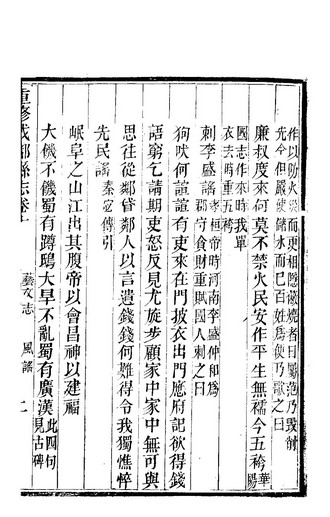 作以防火災而更相隱蔽燒者日屬范乃毀削
先令但嚴使儲水而已百姓爲便乃歌之曰
廉叔度來何莫不禁火民安作平生無襦今五袴華陽
國志作來時我單
衣去時重五袴
刺李盛謡孝桓帝時河南李盛仲和爲
郡守貪財重賦國人刺之曰
狗吠何諠諠有吏來在門披衣出門應府記欲得錢
語窮乞請期吏怒反見尤旋步顧家中家中無可與
思往從鄰貸鄰人以言遺錢錢何難得令我獨憔悴
先民謡秦宓傳引
岷阜之山江出其腹帝以會昌神以建福
大饑不饑蜀有蹲鴟大旱不亂蜀有廣漢此四句見古碑
重修成都縣志卷十 藝文志 風謡 二